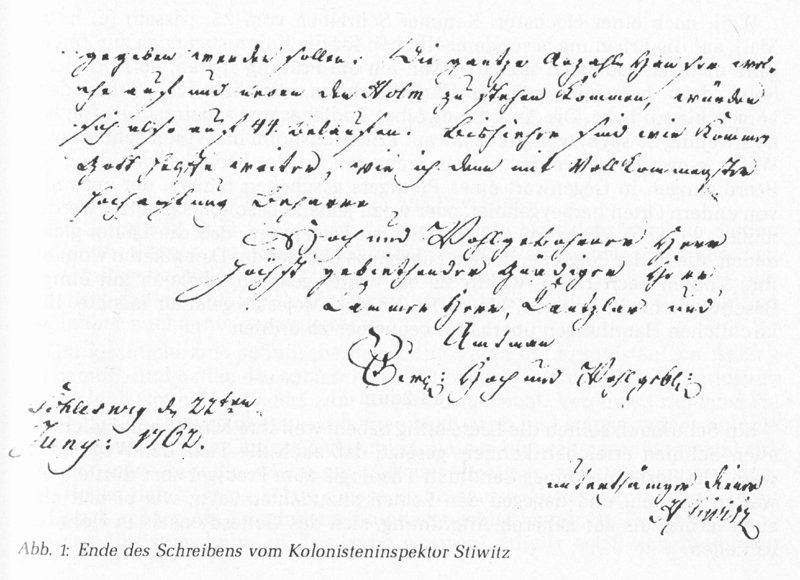 gegeben werden sollen. Die gantze Anzahl Häuser wel-
che auf und neben den Holm zu stehen kommen, würden
sich also auf 41. belaufen. Bishiehr sind wir komme
Gott helffe weiter, wie ich denn mit Vollkommenster
Hochachtung beharre
Hoch und Wohlgebohrner Herr
Höchst gebiethender Gnädiger Herr
Cammer Herr, Cantzlar und
Amtman
Ew: Hoch und Wohlgebl:
Schleswig d 22ten
Juny: 1762.
unterthäniger Diener
Stiwitz
Abb. 1: Ende des Schreibens vom Kolonisteninspektor Stiwitz